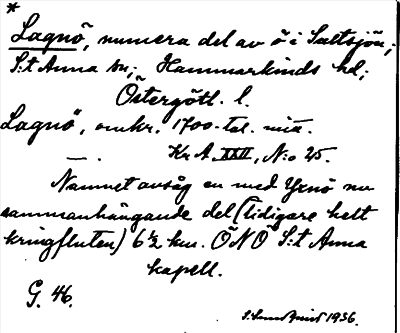 *
Lagnö, numera del av ö i Saltsjön;
S:t Anna sn; Hammarkinds hd;
Östergötl. l.
Lagnö, omkr. 1700-tal. mitt.
Kr A. XXII, N:o 25.
—. Namnet avsåg en med Yxnö nu
sammanhängande del (tidigare helt
kringfluten) 6 ½ km. ÖNÖ S:t Anna
kapell.
G. 46.
1936.